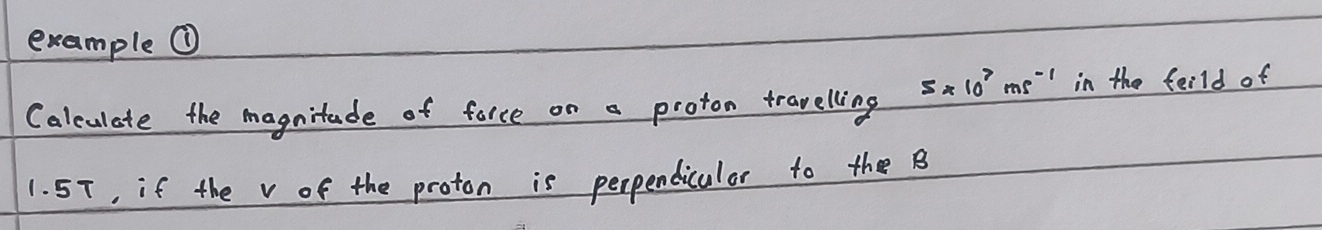 example ①
Calculate the magnitude of force on a proton travelling 5 × 10⁷ ms⁻¹ in the feild of
1.5T, if the v of the proton is perpendicular to the B